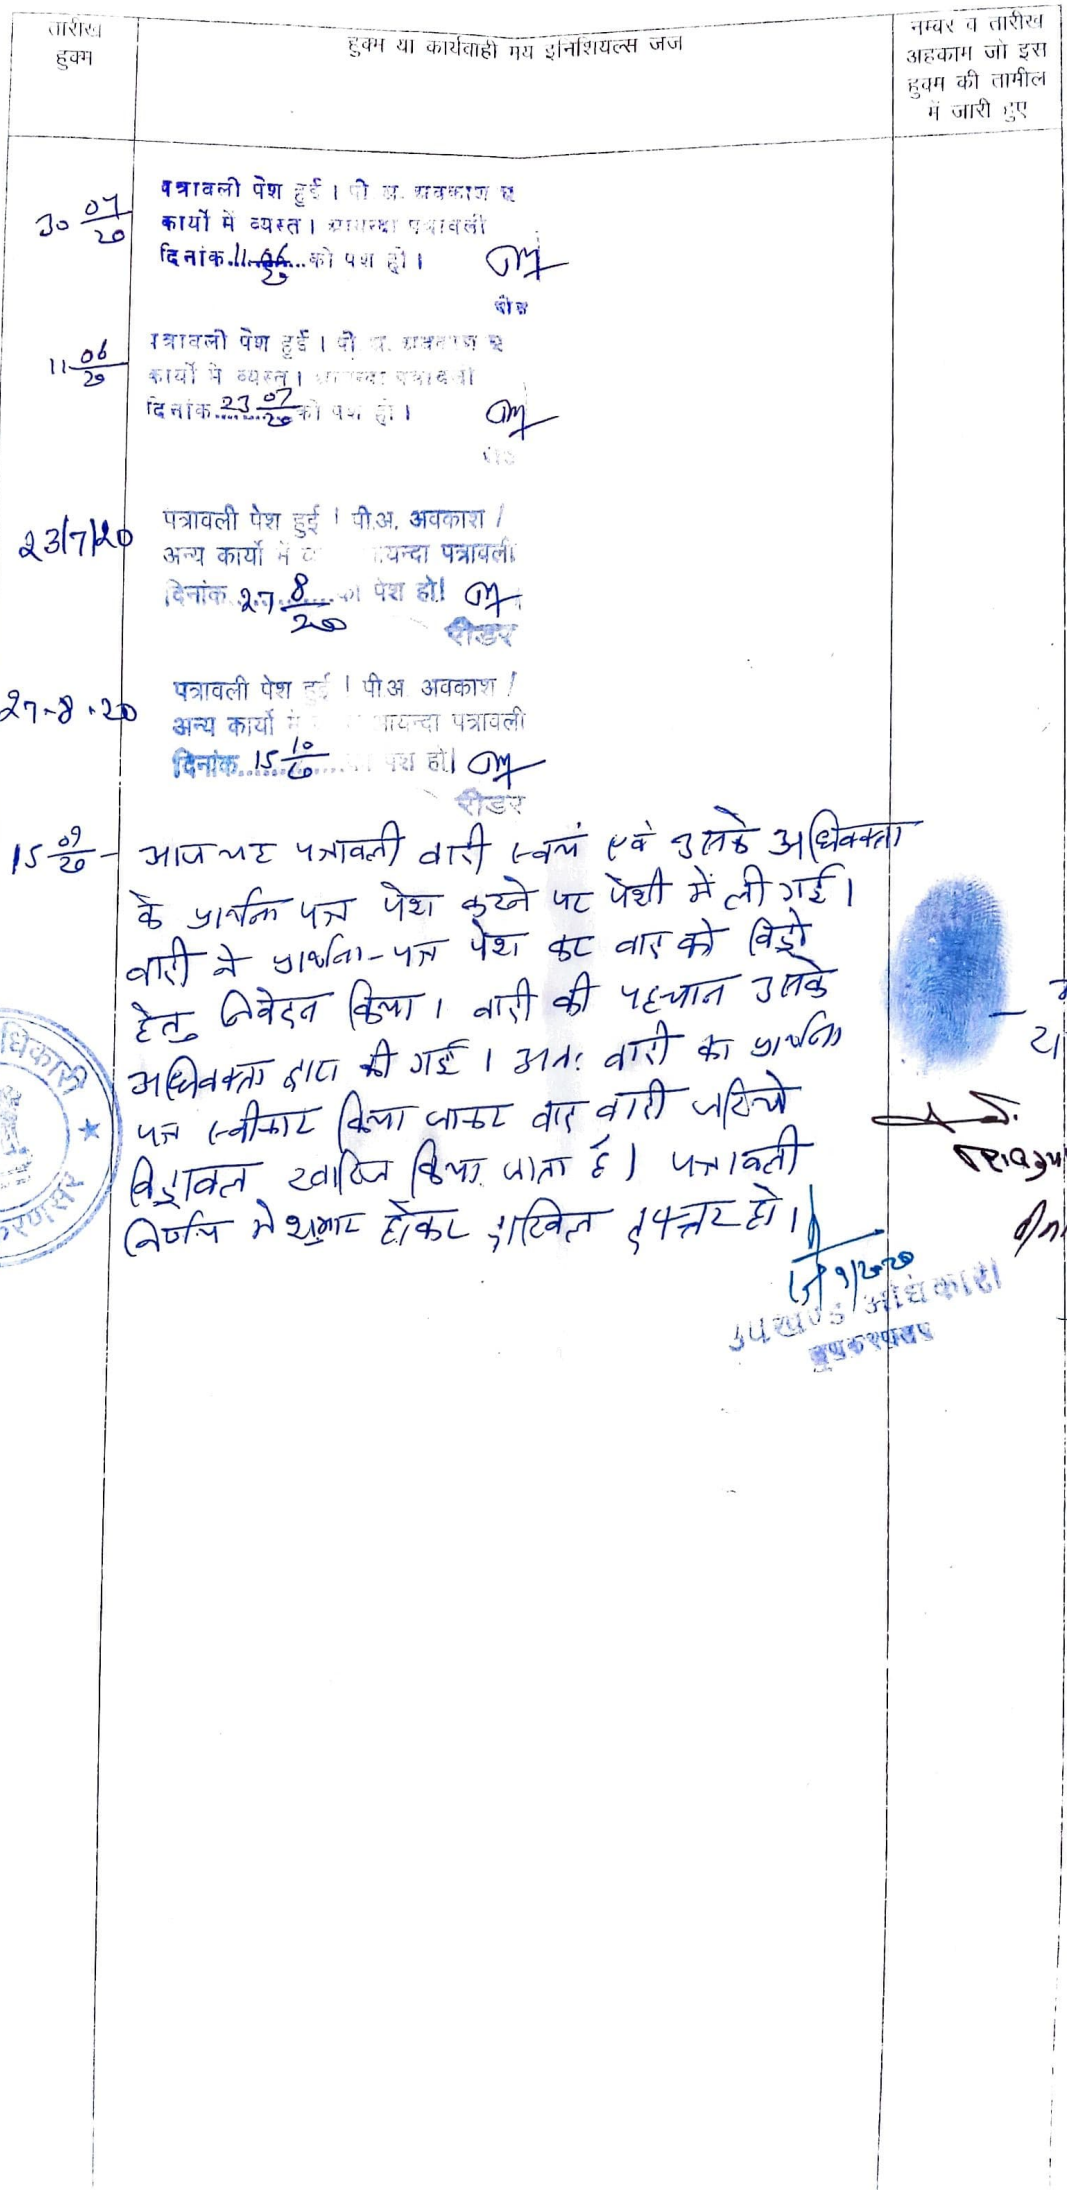 तारीख
हुक्म
हुक्म या कार्यवाही मय इनिशियल्स जज
नम्बर व तारीख
अहकाम जो इस
हुक्म की तामील
में जारी हुए
30 07/20
पत्रावली पेश हुई । पी अ. अवकाश
कार्यो में व्यस्त। आयन्दा पत्रावली
दिनांक 11 06/20 को पेश हो।
11 06/20
पत्रावली पेश हुई । पी अ. अवकाश
कार्यो में व्यस्त। आयन्दा पत्रावली
दिनांक 23 07/20 को पेश हो।
23/7/20
पत्रावली पेश हुई । पी.अ. अवकाश /
अन्य कार्यो में यन्दा पत्रावली
दिनांक 27 8/20 को पेश हो।
रीडर
27-8-20
पत्रावली पेश हुई । पी.अ. अवकाश /
अन्य कार्यो में आयन्दा पत्रावली
दिनांक 15 10 पेश हो।
रीडर
15 09/20 - आज यह पत्रावली वादी स्वयं एवं उसके अधिवक्ता
के प्रार्थना पत्र पेश करने पर पेशी में ली गई।
वादी ने प्रार्थना-पत्र पेश कर वाद को विड्रो
हेतु निवेदन किया। वादी की पहचान उसके
अधिवक्ता द्वारा की गई। अतः वादी का प्रार्थना
पत्र स्वीकार किया जाकर वाद वादी जरिये
विड्रावल खारिज किया जाता है। पत्रावली
निर्णय में शुमार होकर दाखिल दफ्तर हो।
15/9/2020
उपखण्ड अधिकारी
लूणकरणसर
धिकारी
करणसर